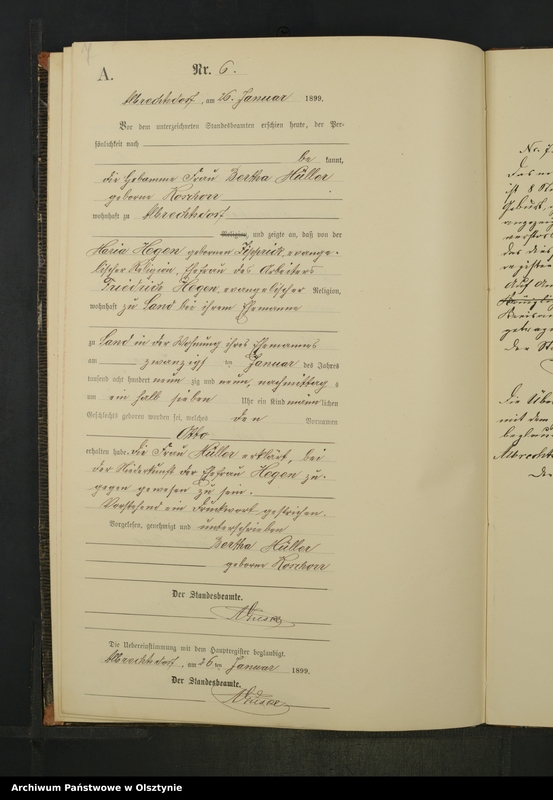 A.
Nr. 6.
Albrechtsdorf, am 26. Januar 1899.
Vor dem unterzeichneten Standesbeamten erschien heute, der Per-
sönlichkeit nach
be kannt,
die Hebamme Frau Bertha Müller
geborne Roschorr
wohnhaft zu Albrechtsdorf
Religion, und zeigte an, daß von der
Maria Hegen geborenen evange-
lischer Religion, Ehefrau des Arbeiters
Friedrich Hegen, evangelischer Religion,
wohnhaft zu Land bei ihrem Ehemanne
zu Land in der Wohnung ihres Ehemannes
am zwanzigsten Januar des Jahres
tausend acht hundert neun zig und neun, nachmittag s
um ein halb sieben Uhr ein Kind männ lichen
Geschlechts geboren worden sei, welches den Vornamen
Otto
erhalten habe. Die Frau Müller erklärt, bei
der Niederkunft der Ehefrau Hegen zu-
gegen gewesen zu sein.
Vorstehend ein Druckwort gestrichen.
Vorgelesen, genehmigt und unterschrieben
Bertha Müller
geborne Roschorr
Der Standesbeamte.
Die Uebereinstimmung mit dem Hauptregister beglaubigt.
Albrechtsdorf, am 26 ten Januar 1899.
Der Standesbeamte.
No. 7
Archiwum Państwowe w Olsztynie